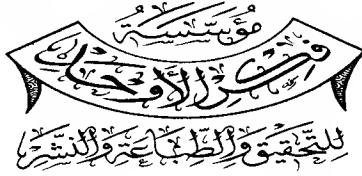 مُؤسَّسَةُ
فِكْرِ الأَوْحَدِ
لِلتَّحْقِيقِ وَالطِّبَاعَةِ وَالنَّشْرِ